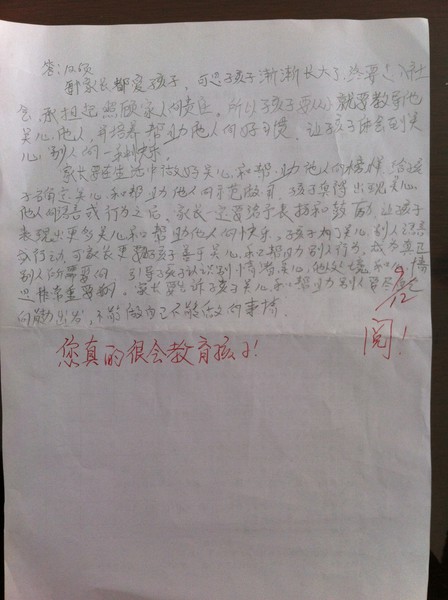 答:12.颂
都家长都爱孩子,可是孩子渐渐长大了,终要走入社
会,承担起照顾家人的责任。所以孩子要从小就要教导他
关心他人,并培养帮助他人的好习惯,让孩子体会到关
心别人的一种快乐。
家长要在生活中做好关心和帮助他人的榜样,给孩
子确立关心和帮助他人的示范做用,孩子表现出现关心
他人的语言或行为之后,家长一定要给予表扬和鼓励,让孩子
表现出更多关心和帮助他人的快乐。孩子有了关心别人
或行动,可家长更要孩子善于关心和帮助别人行为,成为真正
别人所需要的,引导孩子认识别
是非常重要的,家长要告诉孩子关心和帮助别人要尽
的能力出发,不能做自己不能做的事情。
您真的很会教育孩子!
阅!